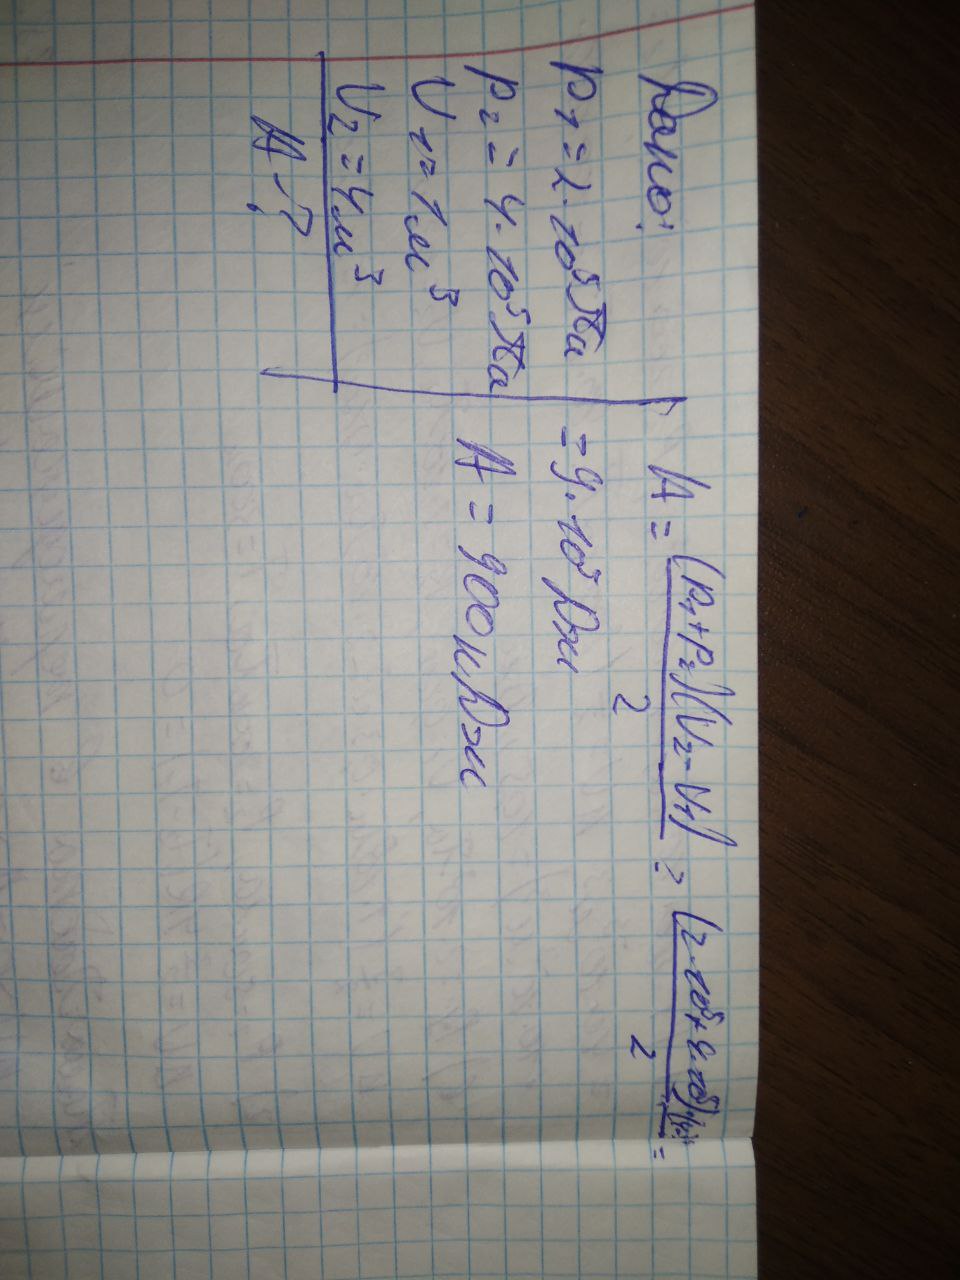 Дано:
p₁ = 2 · 10⁵ Па
p₂ = 4 · 10⁵ Па
V₁ = 1 м³
V₂ = 4 м³
A - ?
A = (p₁ + p₂)(V₂ - V₁) / 2 = (2 · 10⁵ + 4 · 10⁵) / 2 =
= 9 · 10⁵ Дж
A = 900 кДж